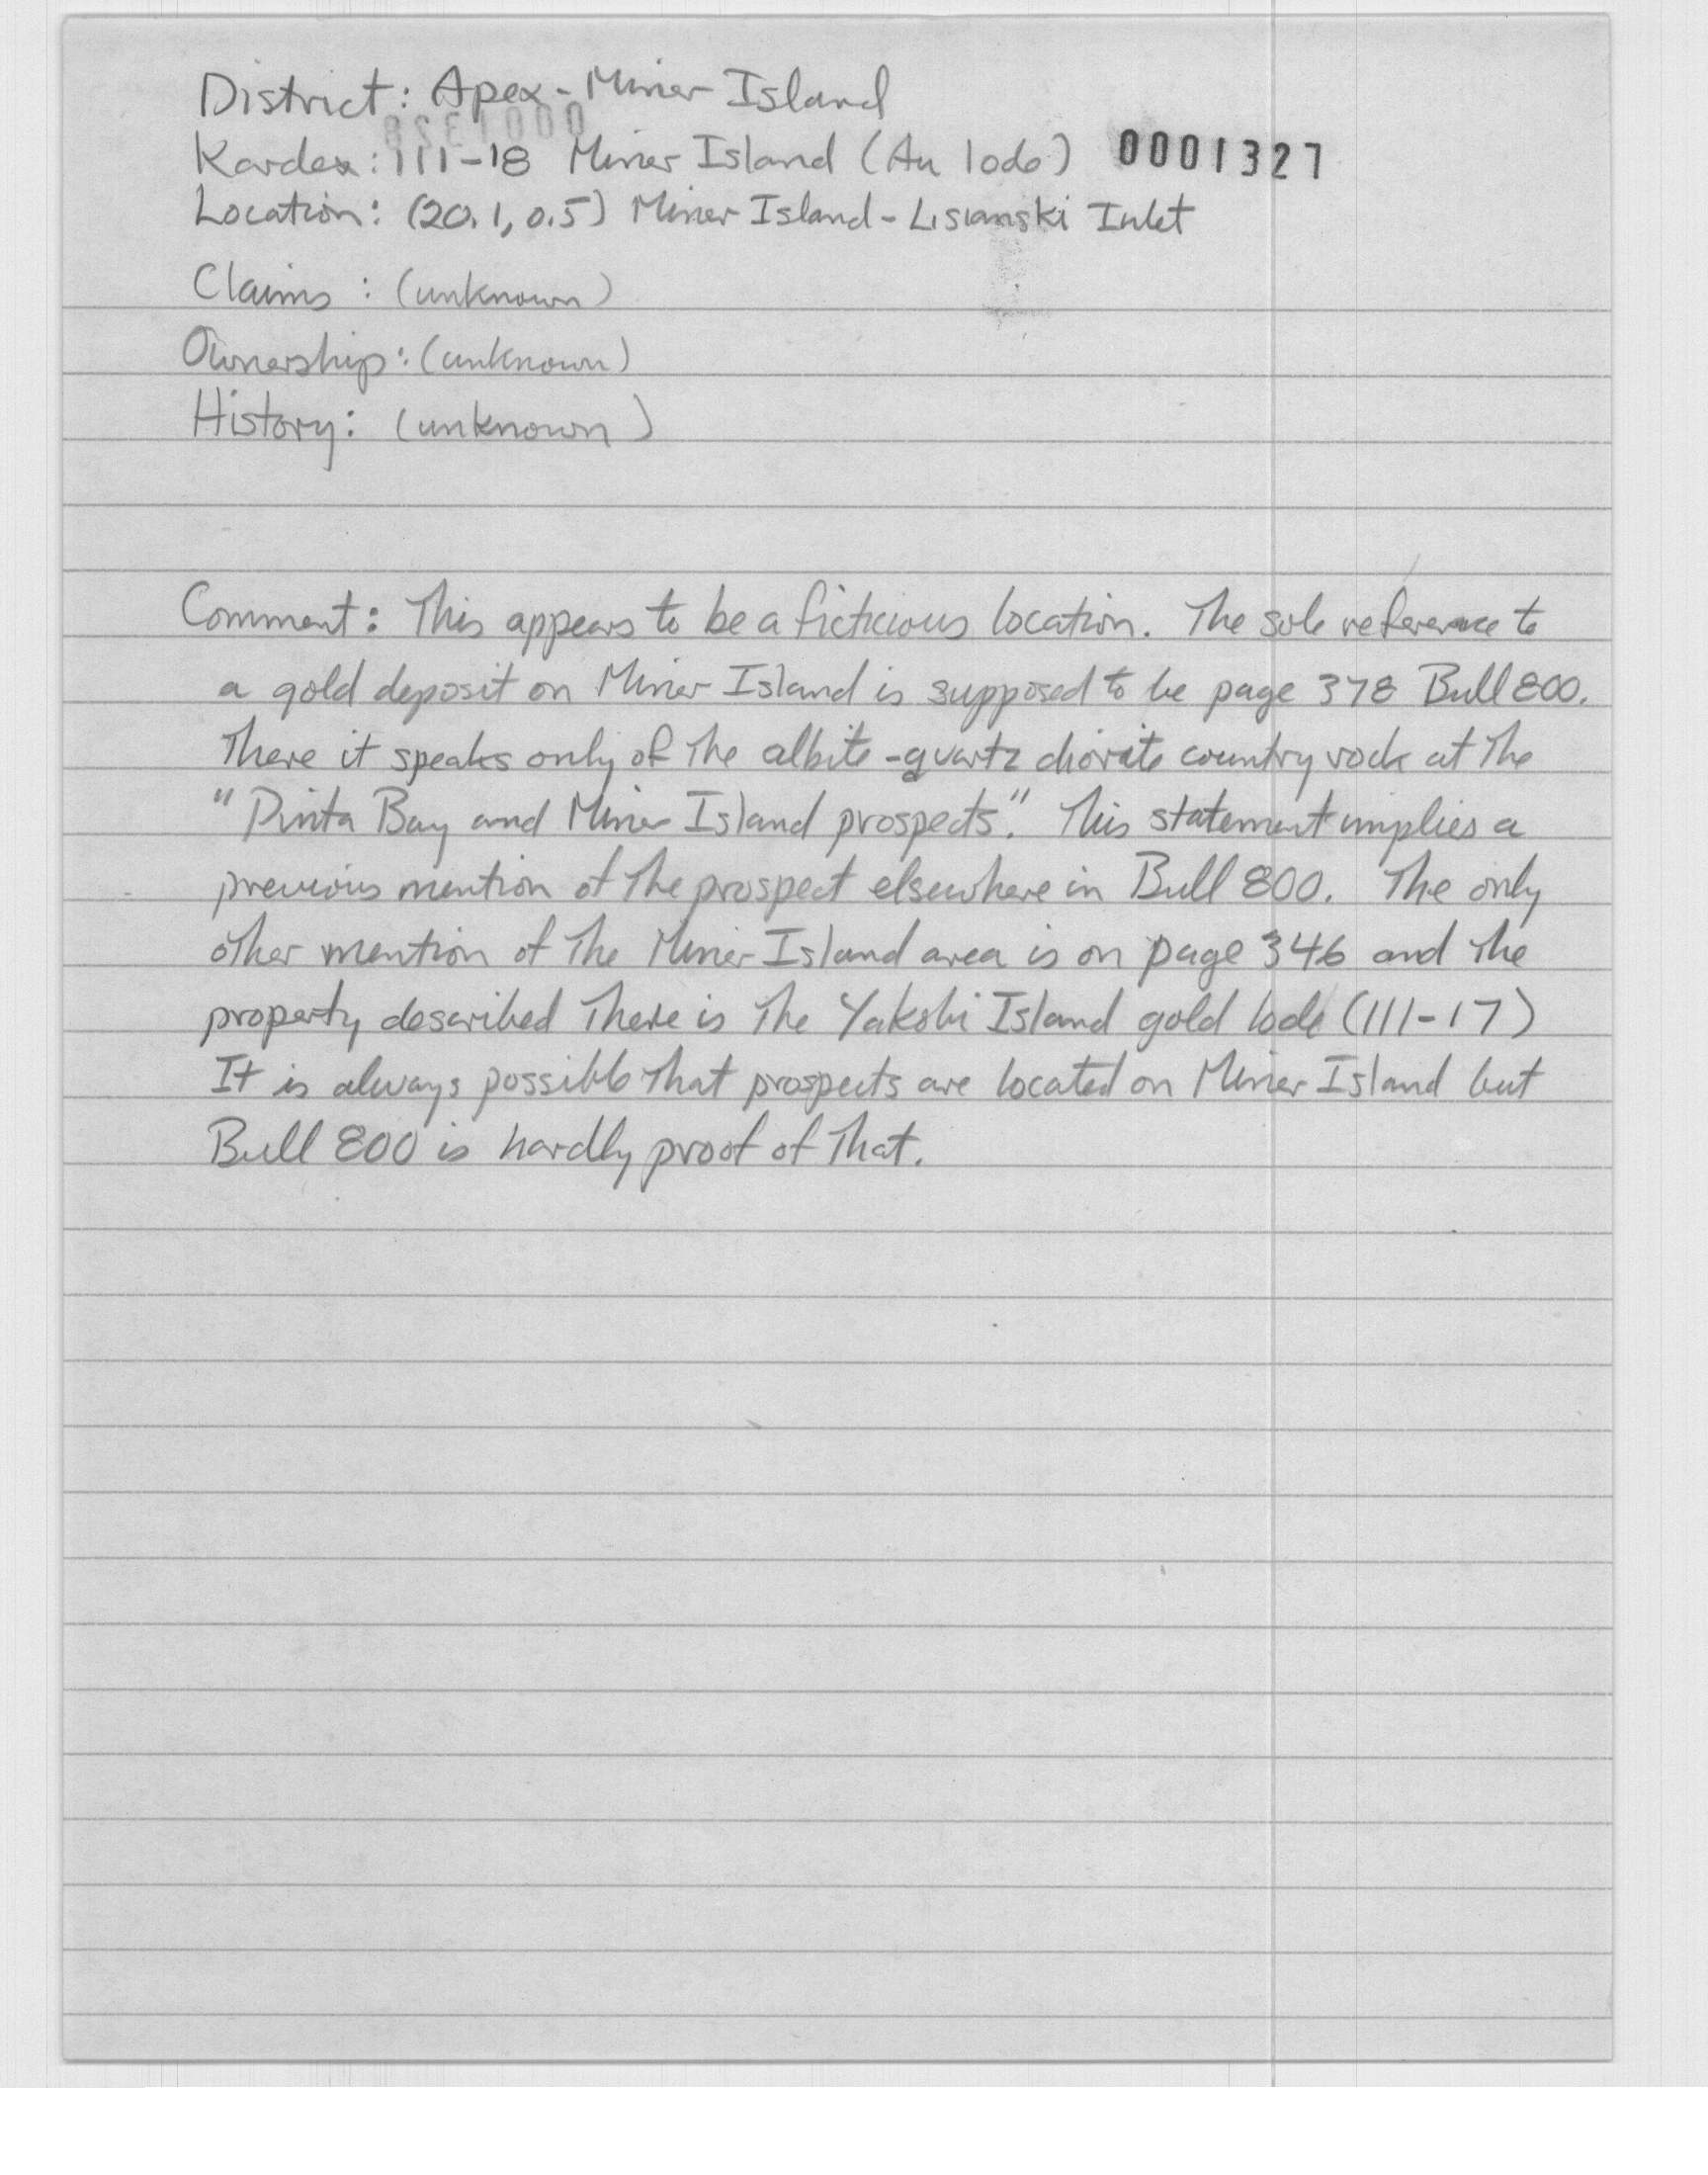 District: Apex - Miner Island
Kardex: 111-18 Miner Island (Au lode) 0001327
Location: (20.1, 0.5) Miner Island - Lisianski Inlet
Claims : (unknown)
Ownership: (unknown)
History: (unknown)
Comment: This appears to be a ficticious location. The sole reference to
a gold deposit on Miner Island is supposed to be page 378 Bull 800.
There it speaks only of the albite-quartz diorite country rock at the
"Pinta Bay and Miner Island prospects." This statement implies a
previous mention of the prospect elsewhere in Bull 800. The only
other mention of the Miner Island area is on page 346 and the
property described there is the Yakobi Island gold lode (111-17)
It is always possible that prospects are located on Miner Island but
Bull 800 is hardly proof of that.